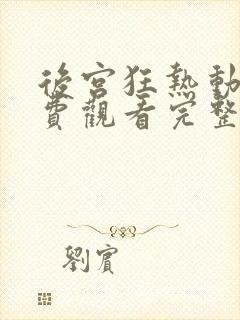 後宮狂熱動
費觀看完整
劉賓